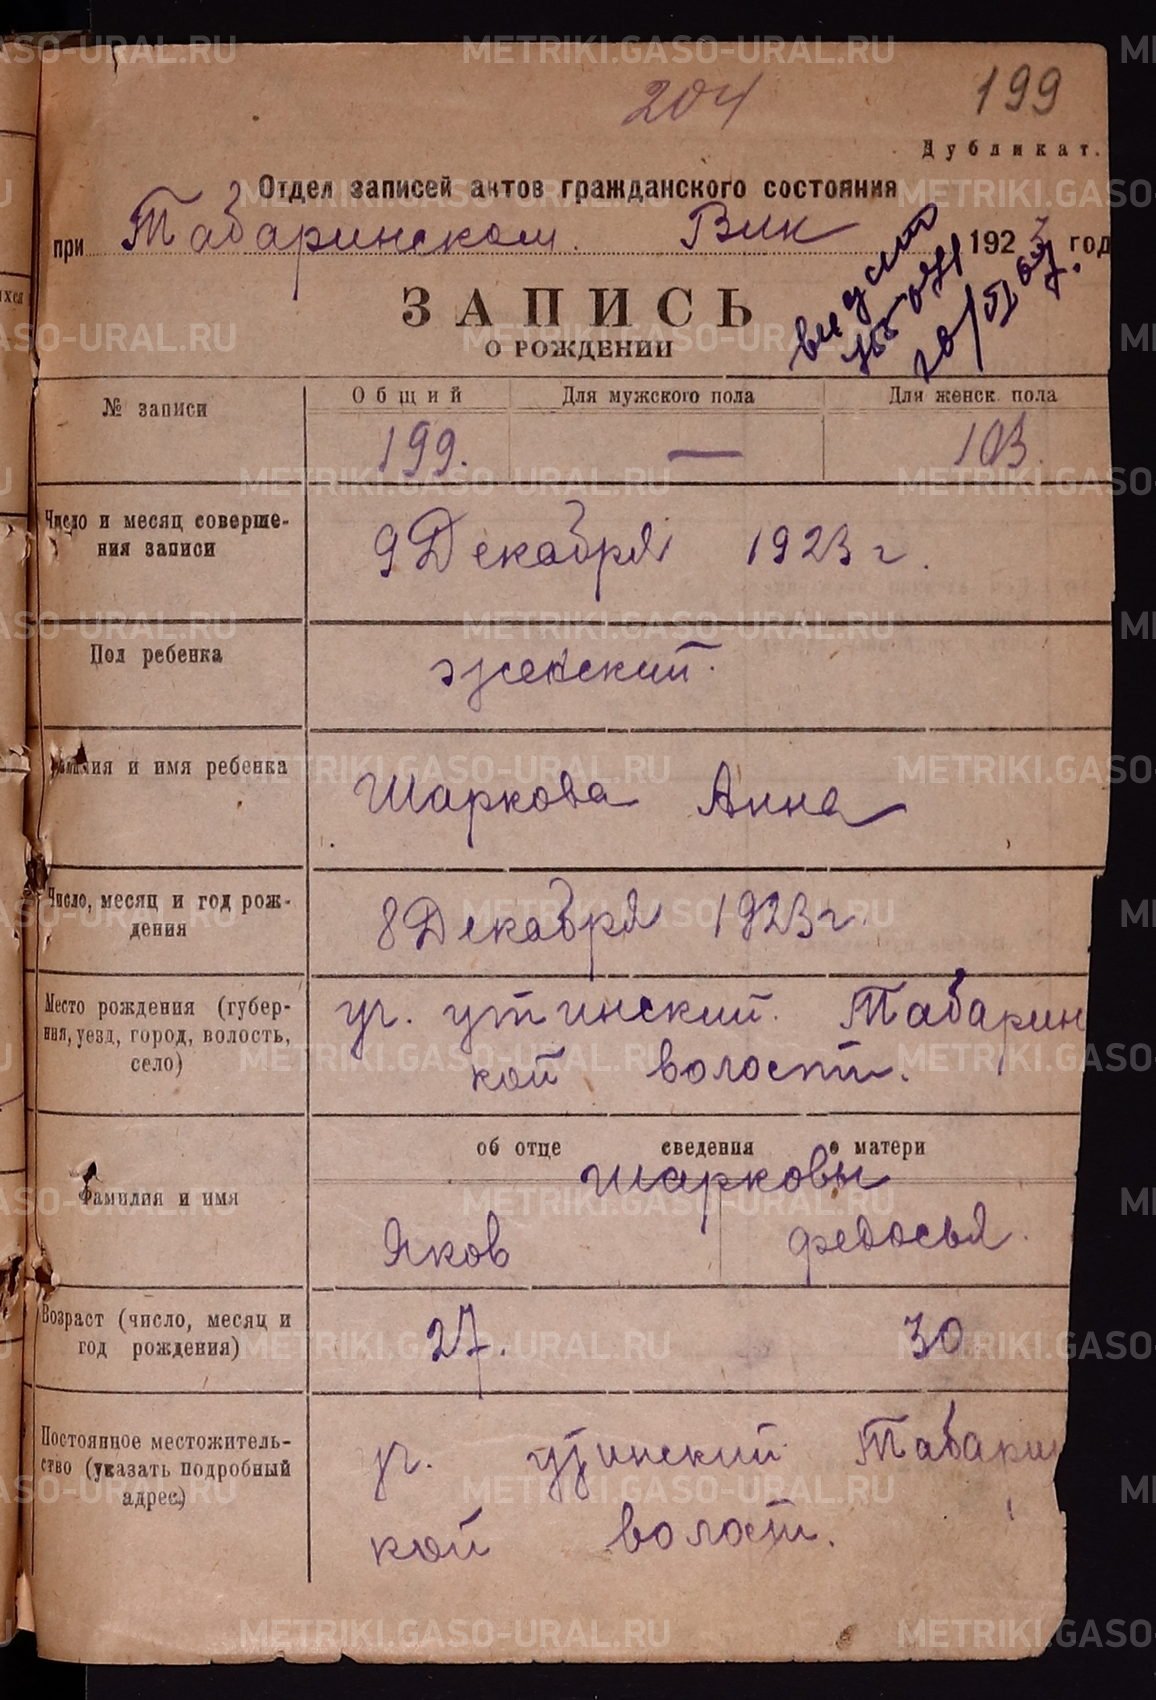 204
199
Дубликат.
Отдел записей актов гражданского состояния
при Табаринском Вик 1923 год
ЗАПИСЬ
О РОЖДЕНИИ
№ записи Общий Для мужского пола Для женск. пола
199. — 103.
Число и месяц соверше-
ния записи
9 Декабря 1923 г.
Пол ребенка
женский.
Фамилия и имя ребенка
Шаркова Анна
Число, месяц и год рож-
дения
8 Декабря 1923 г.
Место рождения (губер-
ния, уезд, город, волость,
село)
уч. утинский. Табарин
кой волости.
об отце сведения о матери
Шарковы
Фамилия и имя
Яков Федосья.
Возраст (число, месяц и
год рождения)
27. 30
Постоянное местожитель-
ство (указать подробный
адрес)
уч. утинский Табарин
кой волост.
METRIKI.GASO-URAL.RU